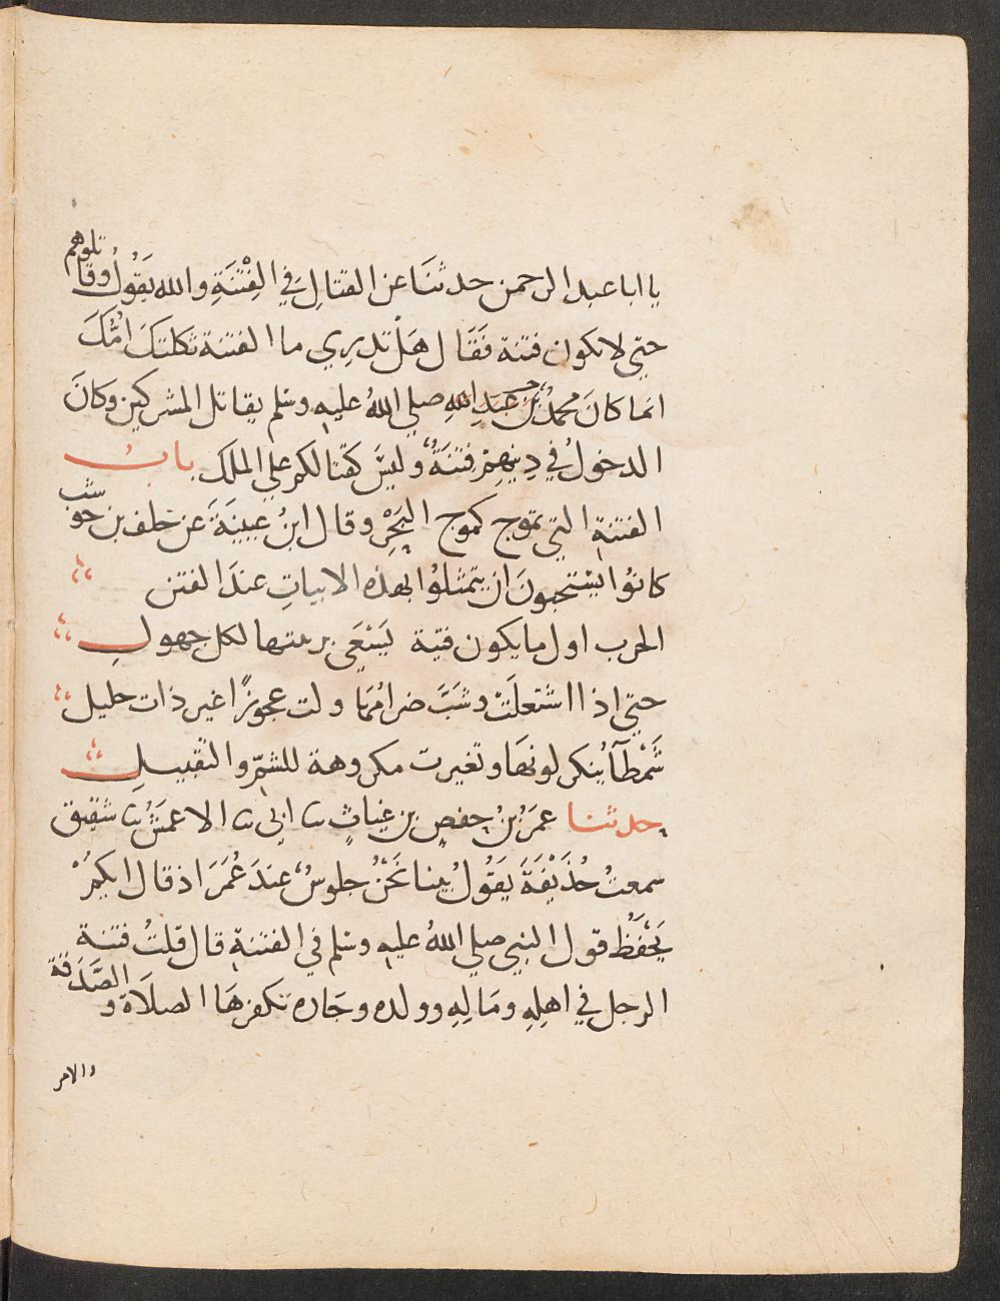 يا ابا عبد الرحمن حدثنَا عن القتالِ في الفِتْنَةِ والله يَقُولُ وقاتلوهم
حتي لا تكون فتنة فَقَال هَلْ تدرِي ما الفتنة ثكلتكَ امُّكَ
انما كانَ محمدُ بن عَبدِ اللهِ صلي اللهُ عليهِ وسَلم يقاتل المشركين وكانَ
الدخولُ في دِينِهِمْ فتنَةٌ وليسَ كقتالكم علي الملك باب
الفتنةِ التي تموج كموج البَحْرِ وقال ابنُ عيينَةَ عن خلف بن حوشب
كانوُا يستحبونَ ان يتمثلوُا بهذه الابياتِ عندَ الفتن
الحرب اول ما يكون فتية يَسْعَي بزينتها لكل جهولِ
حتي اذا اشتعلَتْ وشَبَّ ضرامُهَا ولت عجوزًا غير ذات حليل
شَمْطَآ يُنكر لونهَا وتغيرت مكروهة للشمِّ والتقبيلِ
حدثنا عمَرُ بنُ حفصِ بن غياثٍ ثنا ابي ثنا الاعمَشُ ثنا شقيق
سمعتُ حُذَيْفَةَ يَقُولُ بينا نَحْنُ جلوسٌ عندَ عُمَرَ اذ قال ايكمْ
يَحْفَظُ قول النبي صلي اللهُ عليهِ وسَلم في الفتنةِ قال قلتُ فتنة
الرجل في اهلِهِ ومَالِهِ وولدهِ وجَاره تكفرهَا الصلاَة والصَّدَقة
والامر